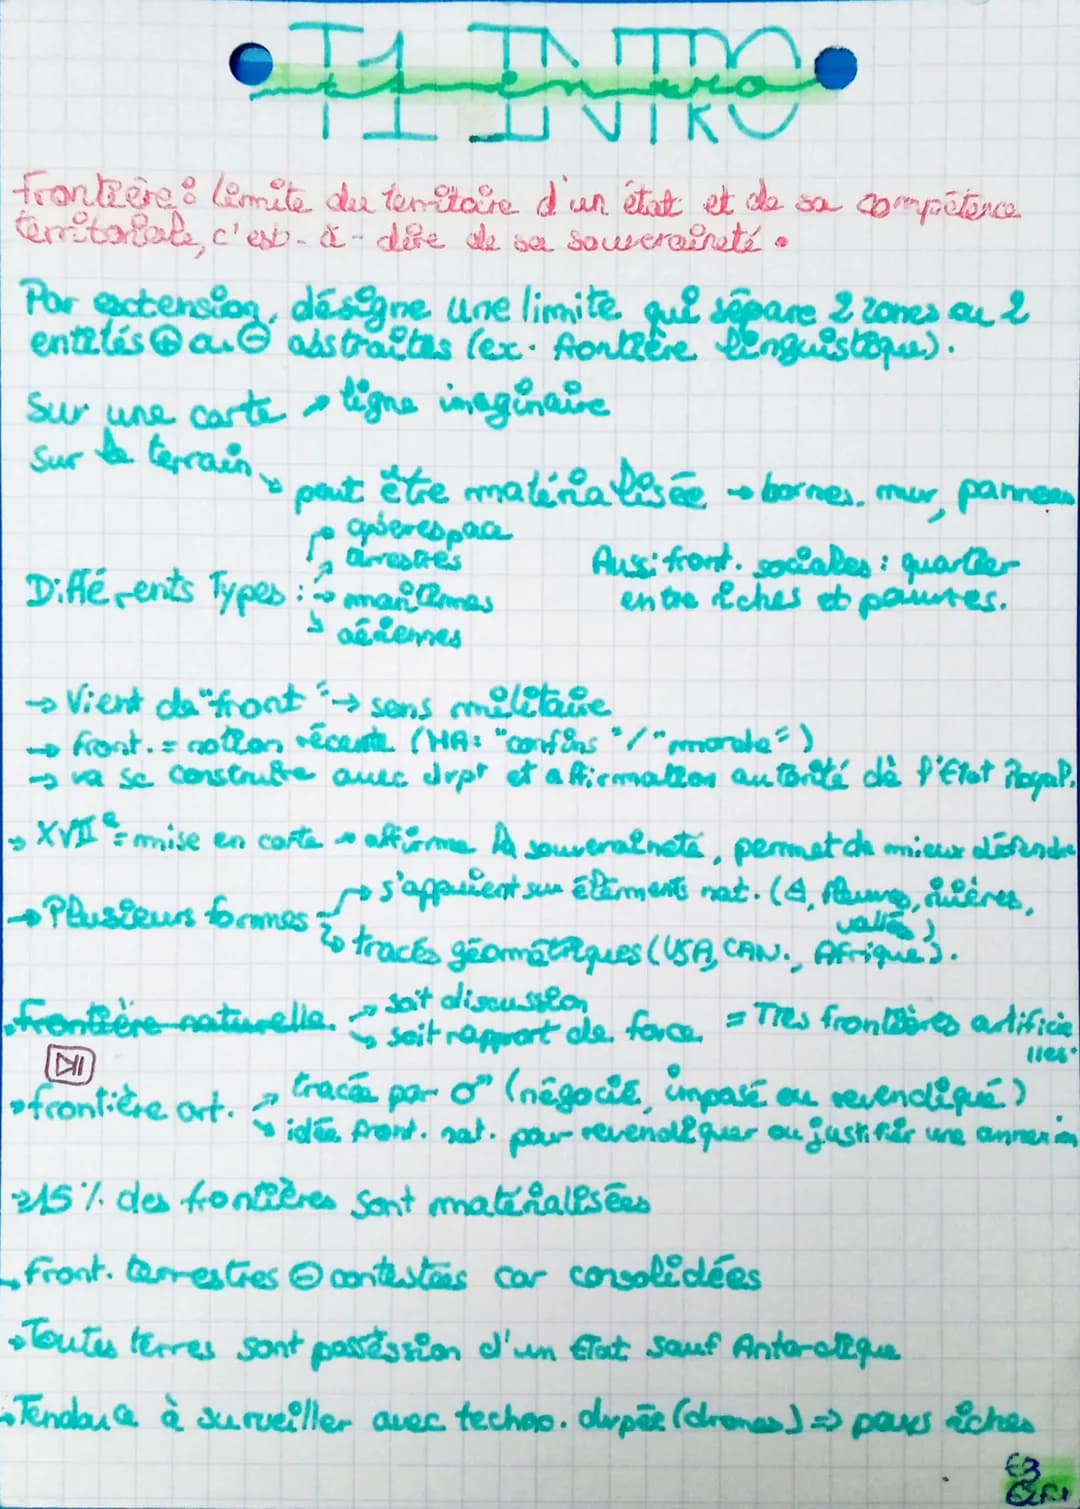 T1 INTRO
t1 intro
Frontière : limite du territoire d'un état et de sa compétence
territoriale, c'est-à-dire de sa souveraineté.
Par extension, désigne une limite qui sépare 2 zones ou 2
entités ⊕ ou ⊖ abstraites (ex. frontière linguistique).
Sur une carte → ligne imaginaire
Sur le terrain
↘ peut être matérialisée → bornes, mur, panneau
→ cyberespace
Aussi front. sociales : quartier
Différents Types : → maritimes
entre riches et pauvres.
↘ aériennes
→ Vient de "front" → sens militaire
→ front. = notion récente (MA: "confins"/"marche")
→ va se construire avec dvpt et affirmation autorité de l'Etat Royal.
→ XVIIe = mise en carte → affirme la souveraineté, permet de mieux défendre
→ s'appuient sur éléments nat. (Δ, fleuves, rivières,
→ Plusieurs formes
vallées)
→ tracés géométriques (USA, CAN., Afrique).
frontière naturelle. → soit discussion
↘ soit rapport de force = Ttes frontières artificie
lles.
→ frontière art. → tracée par σ'' (négocié, imposé ou revendiqué)
↘ idée front. nat. pour revendiquer ou justifier une annexion
→ 15% des frontières sont matérialisées
→ Front. terrestres ⊖ contestées car consolidées
→ Toutes terres sont possession d'un Etat sauf Antarctique
→ Tendance à surveiller avec techno. dvpée (drones) ⇒ pays riches